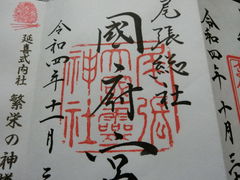 令和四年十一月三
尾張総社
國府宮
尾張
大國靈
神社
令和四年十一月三
延喜式内社
繁栄の神様